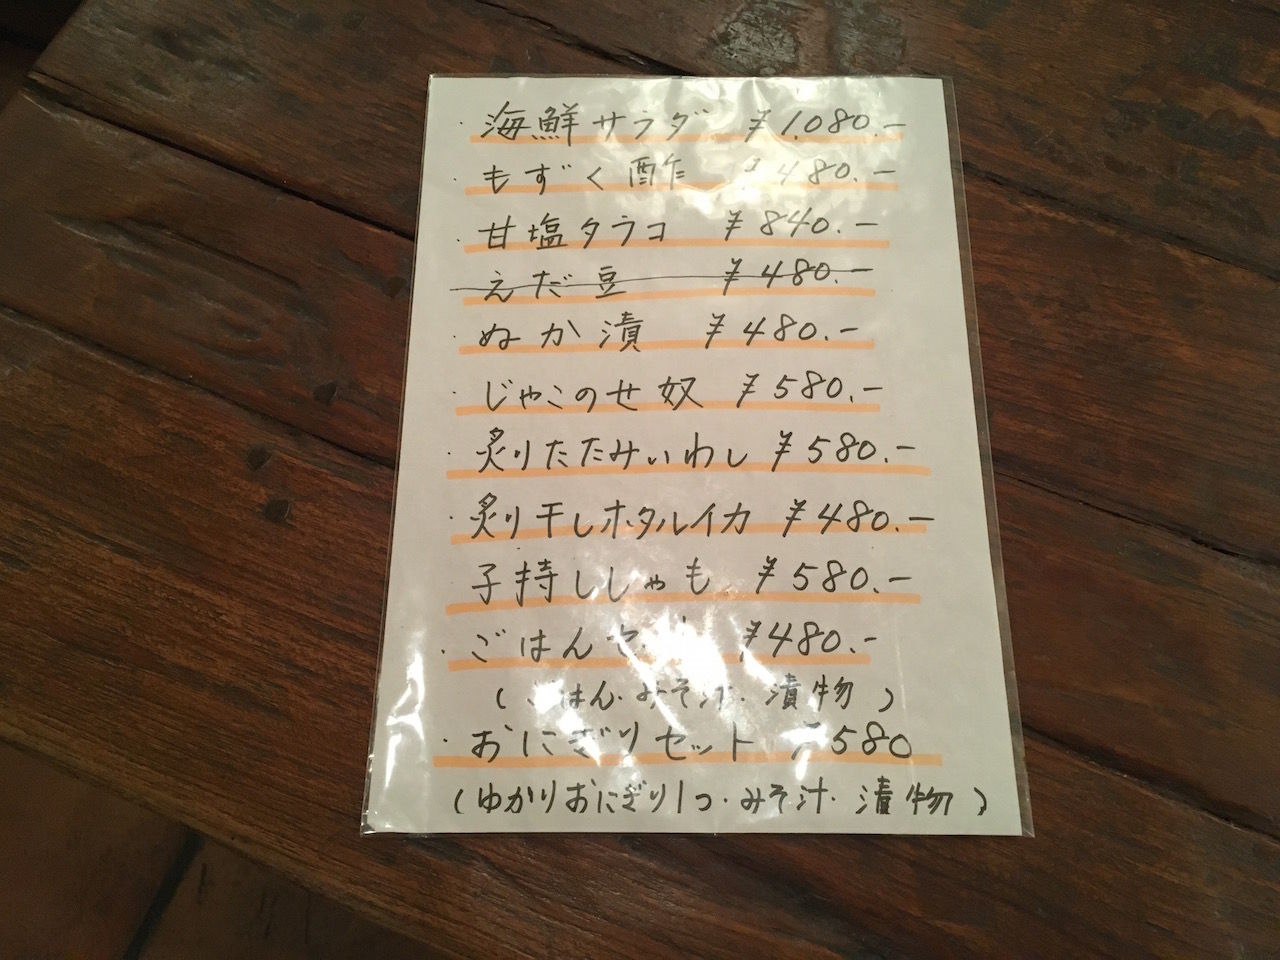 ・海鮮サラダ ¥1.080.-
・もずく酢 ¥480.-
・甘塩タラコ ¥840.-
えだ豆 ¥480.-
・ぬか漬 ¥480.-
・じゃこのせ奴 ¥580.-
・炙りたたみいわし ¥580.-
・炙り干しホタルイカ ¥480.-
・子持ししゃも ¥580.-
・ごはんセ ¥480.-
(ごはん・みそ汁・漬物)
・おにぎりセット ¥580
(ゆかりおにぎり1つ・みそ汁・漬物)